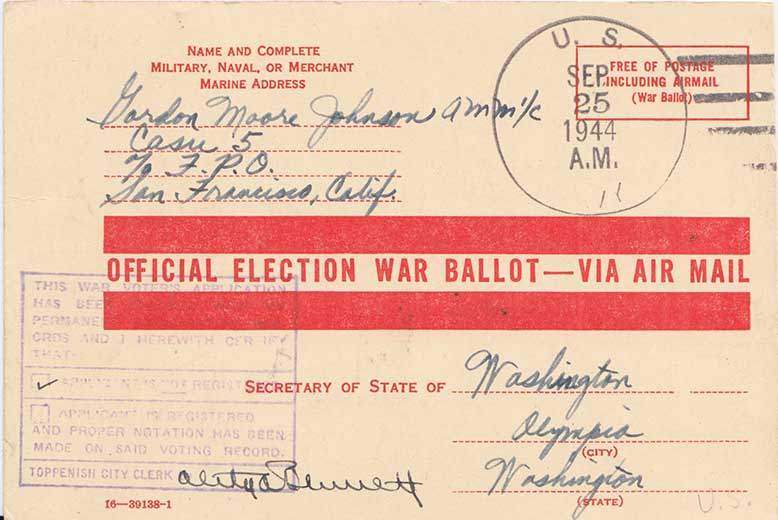 NAME AND COMPLETE
MILITARY, NAVAL, OR MERCHANT
MARINE ADDRESS
Gordon Moore Johnson AMM1/c
Casu 5
℅ F.P.O.
San Francisco, Calif.
U. S.
SEP
25
1944
A.M.
FREE OF POSTAGE
INCLUDING AIRMAIL
(War Ballot)
OFFICIAL ELECTION WAR BALLOT—VIA AIR MAIL
THIS WAR VOTER'S APPLICATION
HAS BEE
PERMANE
CRDS AND I HEREWITH CER IFY
THAT-
APPLICANT IS NOT REGISTERED
APPLICANT IS REGISTERED
AND PROPER NOTATION HAS BEEN
MADE ON SAID VOTING RECORD.
TOPPENISH CITY CLERK
Bennett
SECRETARY OF STATE OF Washington
Olympia
(CITY)
Washington
(STATE)
16—39138-1
U.S.